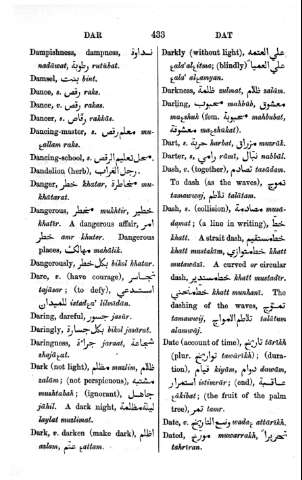 DAR 433 DAT
Dampishness, dampness, نداوة
nadáwat, رطوبة rutúbat.
Damsel, بنت bint.
Dance, s. رقص raks.
Dance, v. رقص rakas.
Dancer, s. رقاص rakkás.
Dancing-master, s. معلم رقص mu-
ạllam raks.
Dancing-school, s. محل تعليم الرقص
Dandelion (herb), رجل الغراب
Danger, خطر khatar, مخاطرة mu-
khatarat.
Dangerous, مخطر mukhtir, خطير
khatír. A dangerous affair, امر
خطر amr khater. Dangerous
places, مهالك mahálik.
Dangerously, بكل خطر bikol khatar.
Dare, v. (have courage), تجاسر
tajásar; (to defy), استدعي
للميدان
Daring, dareful, جسور jasúr.
Daringly, بكل جسارة bikol jasárat.
Daringness, جراءة joraat, شجاعة
shajáạt.
Dark (not light), مظلم muzlim, ظلام
zalám; (not perspicuous), مشتبه
mushtabah; (ignorant), جاهل
jáhil. A dark night, ليلة مظلمة
laylat muzlimat.
Dark, v. darken (make dark), اظلم
azlam, عتم ạttam.
Darkly (without light), علي العتمه
(blindly) علي العميا
Darkness, ظلمة zulmat, ظلام zalám.
Darling, محبوب mahbúb, معشوق
maạshuk (fem. محبوبة mahbubat,
معشوقة maạshúkat).
Dart, s. حربة harbat, مزراق murák.
Darter, s. رامي rámí, نبال nabbál.
Dash, v. (together), تصادم tasádam.
To dash (as the waves), تموج
tamawwaj, تلاطم talátam.
Dash, s. (collision), مصادمة musá-
damat; (a line in writing), خط
khatt. A strait dash, خط مستقيم
khatt mustakím, خط متوازي khatt
mutawází. A curved or circular
dash, خط مستدير khatt mustadír,
خط منحني khatt munhaní. The
dashing of the waves, تموج
tamawwaj, تلاطم الامواج talátum
alamwáj.
Date (account of time), تاريخ táríkh
(plur. تواريخ tawáríkh); (dura-
tion), قيام kiyám, دوام dawám,
استمرار istimrár; (end), عاقبة
ạ́kibat; (the fruit of the palm
tree), تمر tamr.
Date, v. وضع التاريخ wada, attáríkh.
Dated, مورخ muwarrakh, تحريرا
tahríran.